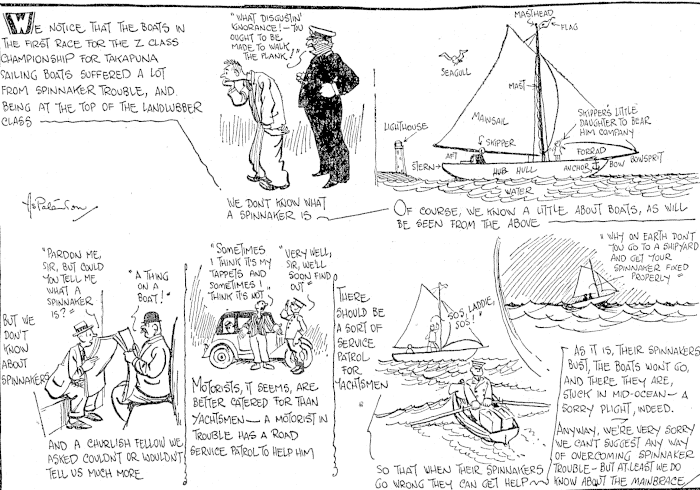 WE NOTICE THAT THE BOATS IN
THE FIRST RACE FOR THE Z CLASS
CHAMPIONSHIP FOR TAKAPUNA
SAILING BOATS SUFFERED A LOT
FROM SPINNAKER TROUBLE, AND.
BEING AT THE TOP OF THE LANDLUBBER
CLASS
"WHAT DISGUSTIN'
IGNORANCE! – YOU
OUGHT TO BE
MADE TO WALK
THE PLANK!"
WE DON'T KNOW WHAT
A SPINNAKER IS
MASTHEAD
FLAG
SEAGULL
MAST
MAINSAIL
SKIPPER'S LITTLE
DAUGHTER TO BEAR
HIM COMPANY
LIGHTHOUSE
SKIPPER
FORRAD
AFT
BOW
BOWSPRIT
STERN
HUB HULL
ANCHOR
WATER
OF COURSE, WE KNOW A LITTLE ABOUT BOATS, AS WILL
BE SEEN FROM THE ABOVE
"PARDON ME,
SIR, BUT COULD
YOU TELL ME
WHAT A
SPINNAKER
IS?"
"A THING
ON A
BOAT!"
BUT WE
DON'T
KNOW
ABOUT
SPINNAKERS
AND A CHURLISH FELLOW WE
ASKED COULDN'T OR WOULDN'T
TELL US MUCH MORE
"SOMETIMES
I THINK IT'S MY
TAPPETS AND
SOMETIMES I
THINK IT'S NOT
"VERY WELL,
SIR, WE'LL
SOON FIND
OUT"
MOTORISTS, IT SEEMS, ARE
BETTER CATERED FOR THAN
YACHTSMEN – A MOTORIST IN
TROUBLE HAS A ROAD
SERVICE PATROL TO HELP HIM
THERE
SHOULD BE
A SORT OF
SERVICE
PATROL
FOR
YACHTSMEN
"SOS, LADDIE,
SOS!"
SO THAT WHEN THEIR SPINNAKERS
GO WRONG THEY CAN GET HELP
"WHY ON EARTH DON'T
YOU GO TO A SHIPYARD
AND GET YOUR
SPINNAKER FIXED
PROPERLY"
AS IT IS, THEIR SPINNAKERS
BUST, THE BOATS WON'T GO,
AND THERE THEY ARE,
STUCK IN MID-OCEAN – A
SORRY PLIGHT, INDEED.
ANYWAY, WE'RE VERY SORRY
WE CAN'T SUGGEST ANY WAY
OF OVERCOMING SPINNAKER
TROUBLE – BUT AT LEAST WE DO
KNOW ABOUT THE MAINBRACE